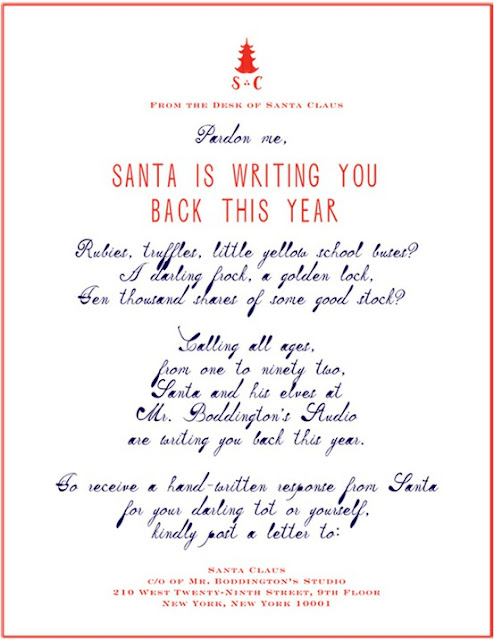 S C
FROM THE DESK OF SANTA CLAUS
Pardon me,
SANTA IS WRITING YOU
BACK THIS YEAR
Rubies, truffles, little yellow school buses?
A darling frock, a golden lock,
Ten thousand shares of some good stock?
Calling all ages,
from one to ninety two,
Santa and his elves at
Mr. Boddington's Studio
are writing you back this year.
To receive a hand-written response from Santa
for your darling tot or yourself,
kindly post a letter to:
SANTA CLAUS
C/O OF MR. BODDINGTON'S STUDIO
210 WEST TWENTY-NINTH STREET, 9TH FLOOR
NEW YORK, NEW YORK 10001